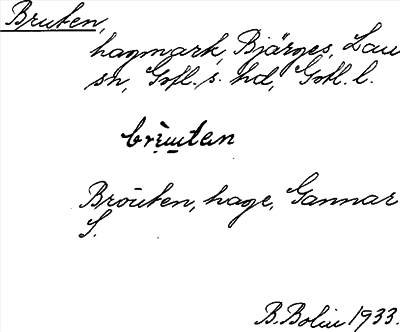 Bruten,
hagmark, Bjärges, Lau
sn, Gotl. s. hd, Gotl. l.
brùtan
Bröuten, hage, Gannar
S.
B. Bolin 1933.